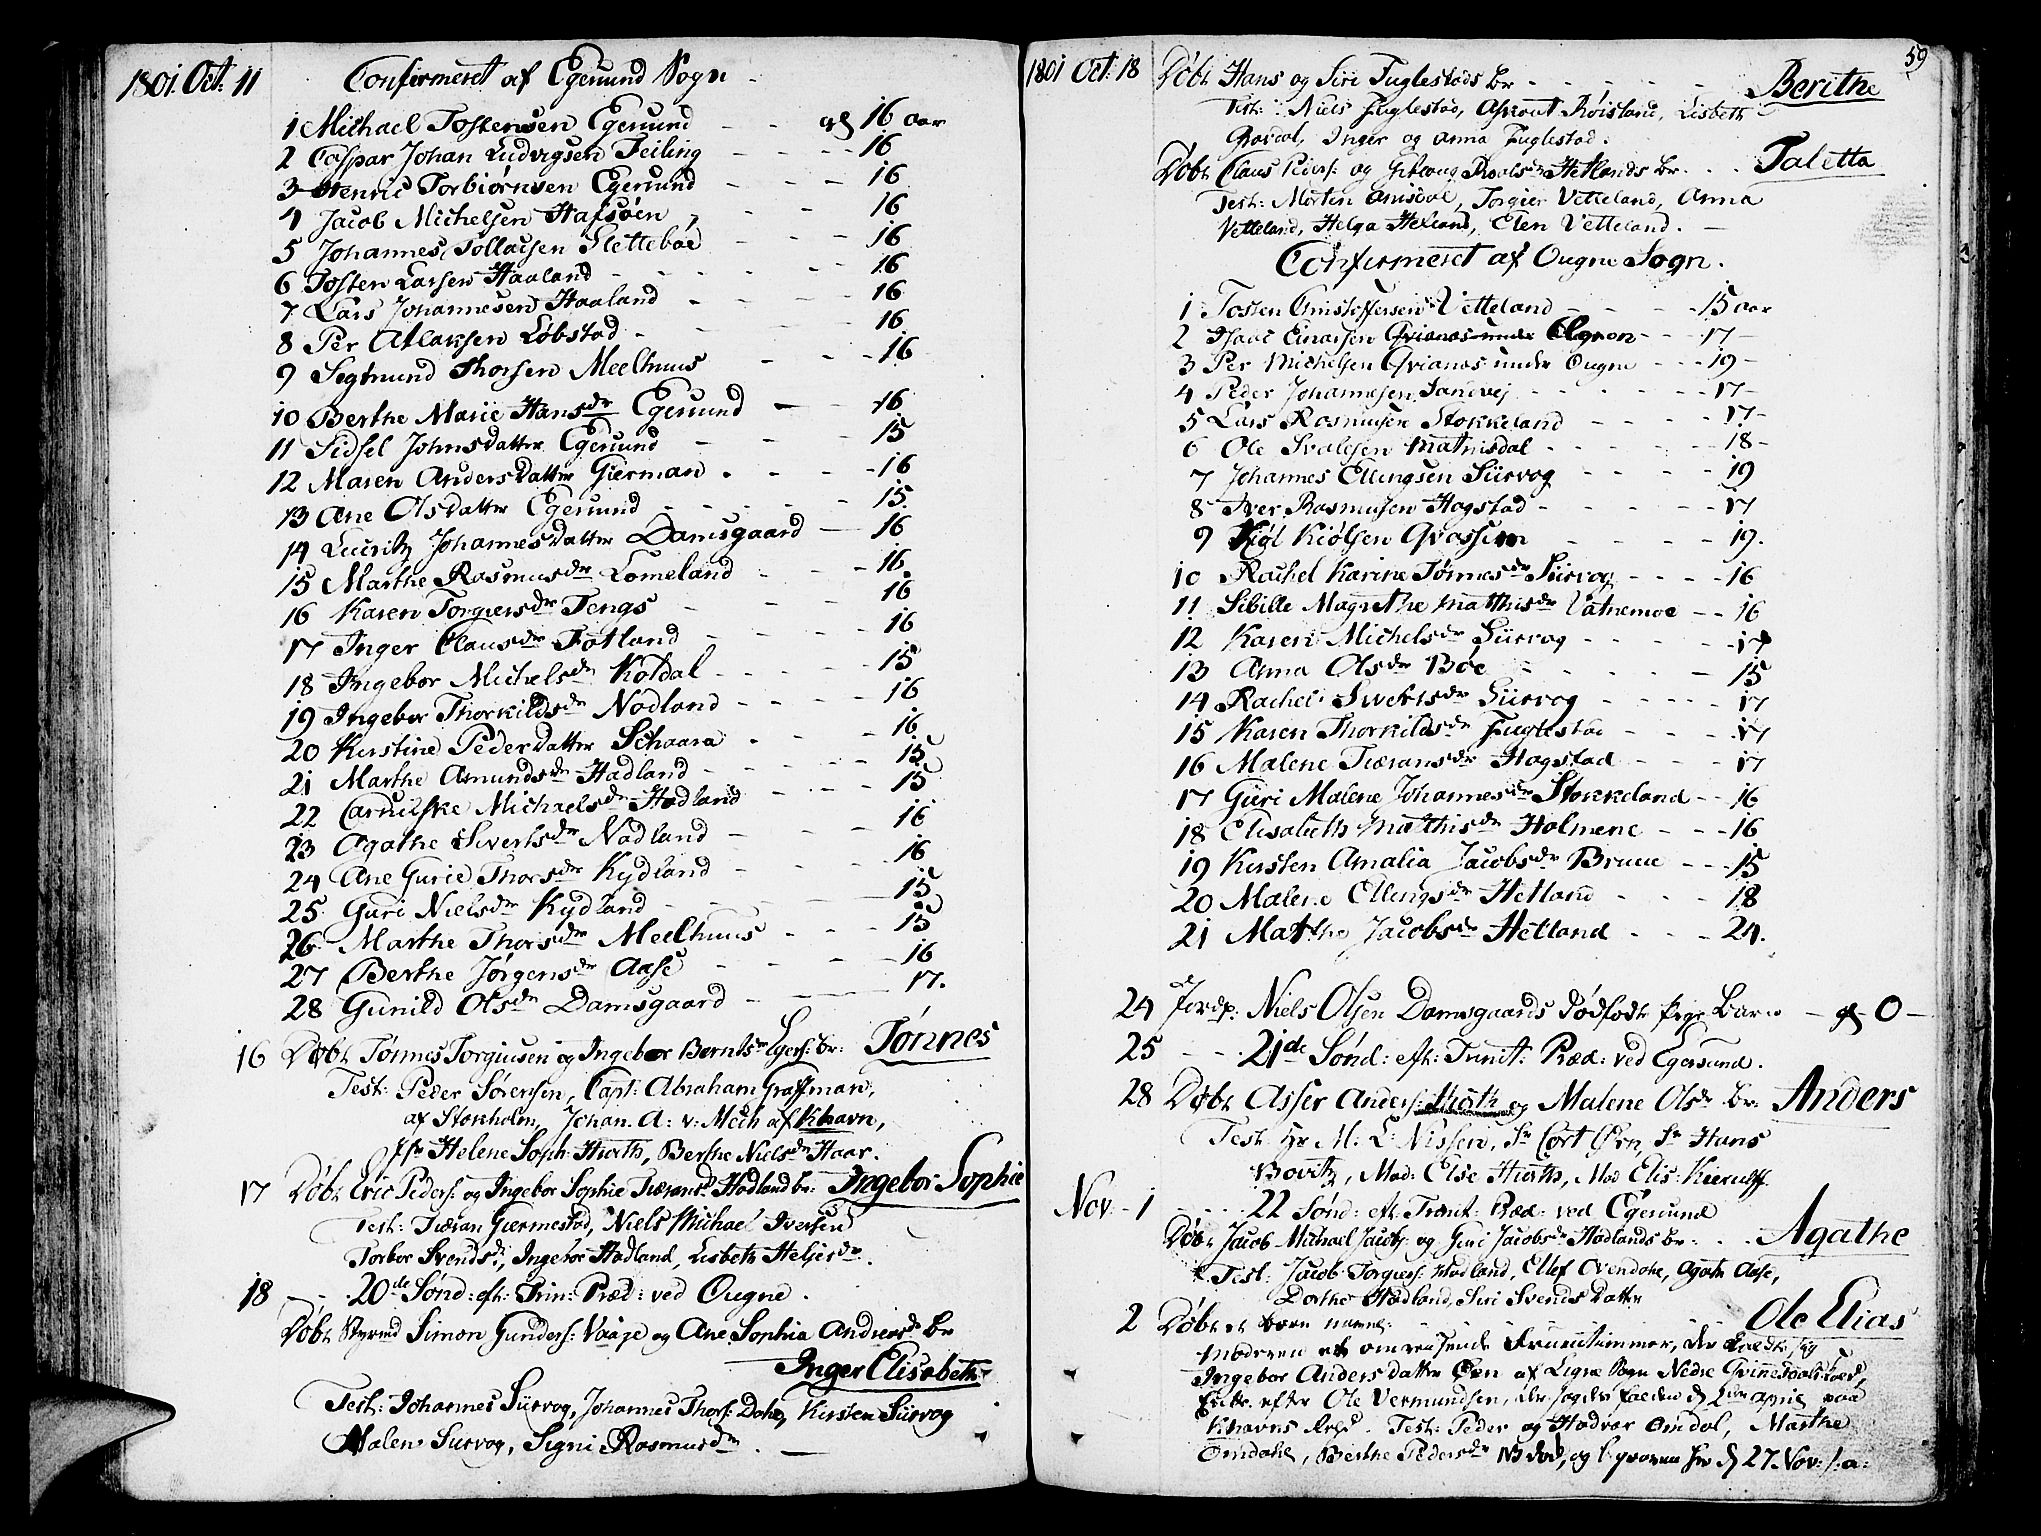 1801. Oct: 11 Confirmeret af Egersund Sogn
1 Michael Tostensen Egersund - - gl 16 aar
2 Caspar Johan Ludvigsen Feiling - - - - 16
3 Henric Torbiørnsen Egersund - - - 16
4 Jacob Michelsen Hafsøen - - - 16
5 Johannes Tollacsen Slettebøe - - - 16
6 Tosten Larsen Haaland - - - - - 16
7 Lars Johannesen Haaland - - - - 16
8 Per Atlaksen Løbstad - - - - 16
9 Segmund Thorsen Meelhuus - - - 16
10 Berthe Marie Hansdr Egersund - - 16
11 Sidsel Johnsdatter Egersund - - - 15
12 Maren Andersdatter Gierman - - - 16
13 Ane Olsdatter Egersund - - - - 15.
14 Johannesdatter Damsgaard - 16
15 Marthe Rasmusdr Lomeland - - - 16
16 Karen Torgiersdr Tengs - - - 16
17 Inger Clausdr Fotland - - - - 16
18 Ingebor Michelsdr Koldal - - - - 15
19 Ingebor Thorkildsdr Nodland - - - - 16
20 Kirstine Pedersdatter Schaara - - - 16
21 Marthe Amundsdr Hadland - - - - 15
22 Michaelsdr Hadland - - - 15
23 Agathe Sivertsdr Nodland - - - 16
24 Ane Gurie Thorsdr Kydland - 16
25 Guri Nielsdr Kydland - - - - 15
26 Marthe Thorsdr Meelhuus - - - 15
27 Berthe Jørgensdr Aase - - - - 16
28 Gunild Olsdr Damsgaard - - 17.
16 Døbt Tønnes Torgiusen og Ingebor Berntsdr Egers: br: Tønnes
Test: Peder Sørensen, Capt: Abraham Graffman,
af Stokholm, Johan. A: v: Mech af Khavn,
Jfr Helene Soph: Hiorth, Berthe Nielsdr Haar.
17 Døbt Eric Peders: og Ingebor Sophie Tiæransd Hadland br: Ingebor Sophie
Test: Tiæran Giermestad, Niels Michael Iversen
Torbor Svendsdr, Ingebor Hadland, Lisbeth Heljesdr.
18 - - . 20de Sønd: eft: Trin: Præd: ved Ougne.
Døbt Styrmd Simon Gunders: Vaage og Ane Sophia Andreasdr br
Inger Elisabeth
Test: Johannes Sirvog, Johannes Thors: Dahe, Kirsten Sirvog
Malen Survog, Signi Rasmusdr.
59
1801 Oct: 18 Døbt Hans og Siri Fuglestads br - - - - - Berithe
Test: Niels Fuglestad, Asbiørn Røisland, Lisbeth
Grødal, Inger og Anna Fuglestad.
Døbt Claus Peders: og Hetlands br. . . . Taletta
Test: Morten Anisdal, Torgier Vetteland, Anna
Vetteland, Helga Hetland, Elen Vetteland.
Confirmeret af Ougne Sogn.
1 Tosten Christoffersen Vetteland - - - 15 aar
2 Isaac Einarsen - - - 17 -
3 Per Michelsen Qvianes under Ougne - - - 19 -
4 Peder Johannesen Sandvej - - - - - - 17 -
5 Lars Rasmusen Stokkeland - - - - 17 -
6 Ole Svalesen Mathisdal - - - - - 18 -
7 Johannes Ellingsen Sirvog - - - - 19
8 Iver Rasmusen Hogstad - - - - - 17
9 Kiøl Kiølsen Qvassem - - - - - 19.
10 Rachel Karine Tønnesdr Sirvog - - - - 16
11 Sibille Magrethe Matthisdr Vatnemoe - - 16
12 Karen Michelsdr Sirvog - - - - 17
13 Anna Olsdr Bøe - - - - - 15
14 Rachel Sivertsdr Sirvog - - - - 17
15 Karen Thorkildsdr Fuglestad - - - 17
16 Malene Tiæransdr Hogstad - - - 17
17 Guri Malene Johannesdr Stokkeland - - 16
18 Elisabeth Matthisdr Holmene - - - 16
19 Kirsten Amalia Jacobsdr Bruue - - - 15
20 Malene Ellingsdr Hetland - - - 18
21 Marthe Jacobsdr Hetland - - - 24.
24 Jordp: Niels Olsen Damsgaards dødfødt Pige Barn - gl 0 -
25 - - . 21de Sønd: eft: Trinit: Præd: ved Egersund.
28 Døbt Asser Anders: Hiorth og Malene Olsdr br: Anders
Test: Hr M: L: Nissen, Sr Cort Øen, Sr Hans
Bovitz, Mad: Else Hiorths, Mad Elis: Kierulff
Nov: - 1 - - - 22 Sønd: eft: Trinit: Præd: ved Egersund
Døbt Jacob Michael Jacobs: og Guri Jacobsdr Hadlands br: . . . Agathe
Test: Jacob Torgiers: Hadland, Ellef Ovendahe, Agathe Aase,
Dorthe Hadland, Siri Svends Datter
2 Døbt et barn navnl: - - - - - Ole Elias
Moderen et omreisende Fruentimmer, der kaldte sig
Ingebor Anders datter Øen af Ligne Sogn Nedre
efter Ole Vermundsen, der sagdes faldet d 2den April paa
Khavns Rehd. Test: Peder og Hadvar Omdal, Marthe
Omdahl, Berthe Pedersdr NB død, og begraven her d 27 Nov: s: a: